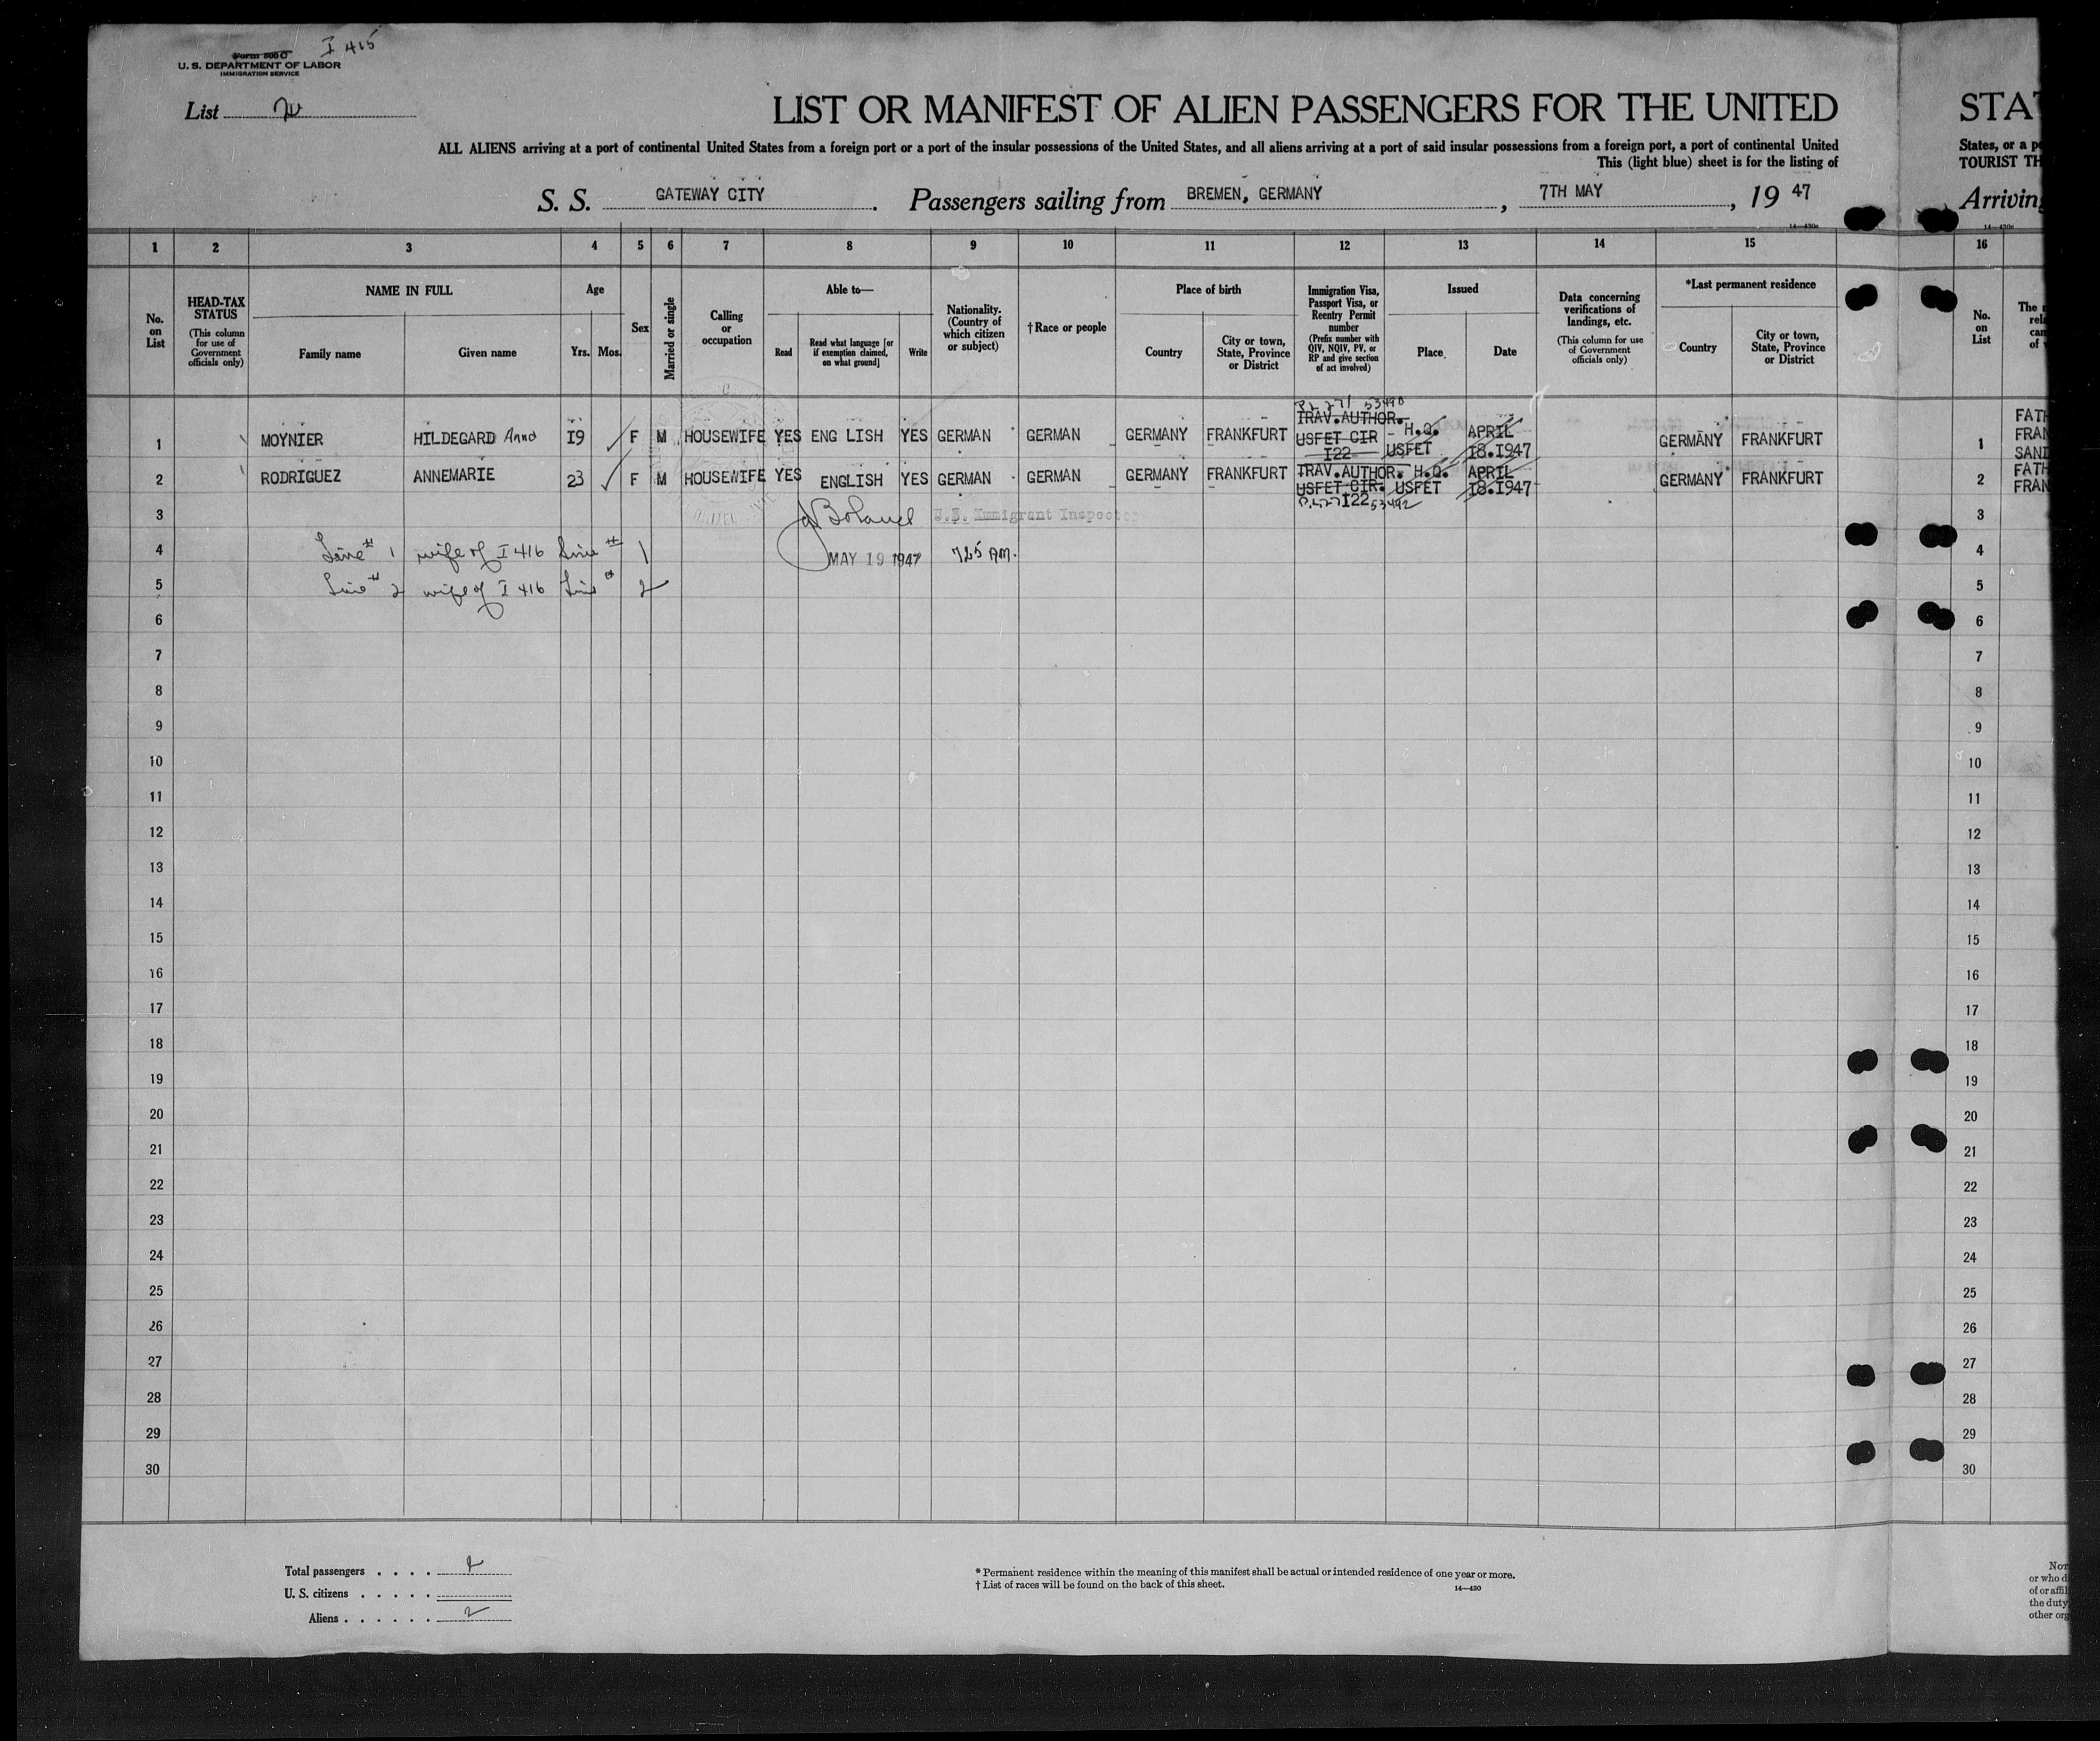 Form 500 C
I 415
U. S. DEPARTMENT OF LABOR
IMMIGRATION SERVICE
List
LIST OR MANIFEST OF ALIEN PASSENGERS FOR THE UNITED
STAT
ALL ALIENS arriving at a port of continental United States from a foreign port or a port of the insular possessions of the United States, and all aliens arriving at a port of said insular possessions from a foreign port, a port of continental United
States, or a p
This (light blue) sheet is for the listing of
TOURIST TH
S. S. GATEWAY CITY. Passengers sailing from BREMEN, GERMANY, 7TH MAY, 19 47
Arriving
14—430a
14—430a
1 2 3 4 5 6 7 8 9 10 11 12 13 14 15 16
No. on List
HEAD-TAX STATUS
(This column for use of Government officials only)
NAME IN FULL
Family name
Given name
Age
Yrs. Mos.
Sex
Married or single
Calling or occupation
Able to—
Read
Read what language [or if exemption claimed, on what ground]
Write
Nationality. (Country of which citizen or subject)
†Race or people
Place of birth
Country
City or town, State, Province or District
Immigration Visa, Passport Visa, or Reentry Permit number
(Prefix number with QIV, NQIV, PV, or RP and give section of act involved)
Issued
Place
Date
Data concerning verifications of landings, etc.
(This column for use of Government officials only)
*Last permanent residence
Country
City or town, State, Province or District
No. on List
The
rel
can
of
P.L 271 53490
1 MOYNIER HILDEGARD Anna I9 F M HOUSEWIFE YES ENG LISH YES GERMAN GERMAN GERMANY FRANKFURT TRAV.AUTHOR. USFET CIR I22 H.Q. USFET APRIL I8.I947 GERMANY FRANKFURT 1
FATH
FRAN
SAND
2 RODRIGUEZ ANNEMARIE 23 F M HOUSEWIFE YES ENGLISH YES GERMAN GERMAN GERMANY FRANKFURT TRAV.AUTHOR. USFET CIR. I22 H.Q. USFET APRIL I8.I947 GERMANY FRANKFURT 2
FATH
FRAN
P.L.27 53492
3 U.S. Immigrant Inspector 3
4 Line # 1 wife of I 416 Line # 1 MAY 19 1947 725 AM. 4
5 Line # 2 wife of I 416 Line # 2 5
6 6
7 7
8 8
9 9
10 10
11 11
12 12
13 13
14 14
15 15
16 16
17 17
18 18
19 19
20 20
21 21
22 22
23 23
24 24
25 25
26 26
27 27
28 28
29 29
30 30
Total passengers . . . . 2
U. S. citizens . . . . .
Aliens . . . . . . 2
* Permanent residence within the meaning of this manifest shall be actual or intended residence of one year or more.
† List of races will be found on the back of this sheet.
14—430
Not
or who d
of or affil
the duty
other org